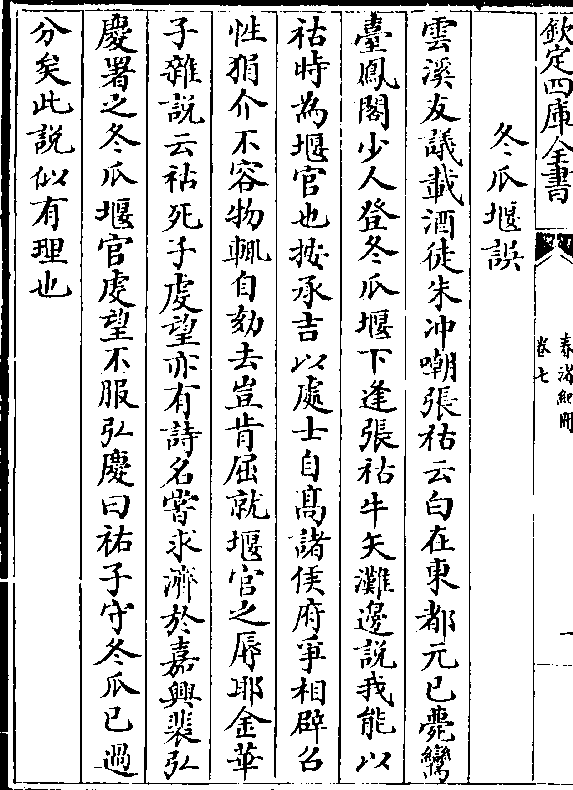 欽定四庫全書
春渚紀聞
卷七
冬瓜堰誤
雲溪友議載酒徒朱冲嘲張祜云白在東都元已薨鸞
臺鳳閣少人登冬瓜堰下逢張祜牛矢灘邊說我能以
祜時為堰官也按承吉以處士自高諸侯府爭相辟召
性狷介不容物輒自劾去豈肯屈就堰官之辱耶金華
子雜說云祜死子虔望亦有詩名嘗求濟於嘉興裴弘
慶署之冬瓜堰官虔望不服弘慶曰祜子守冬瓜已過
分矣此說似有理也